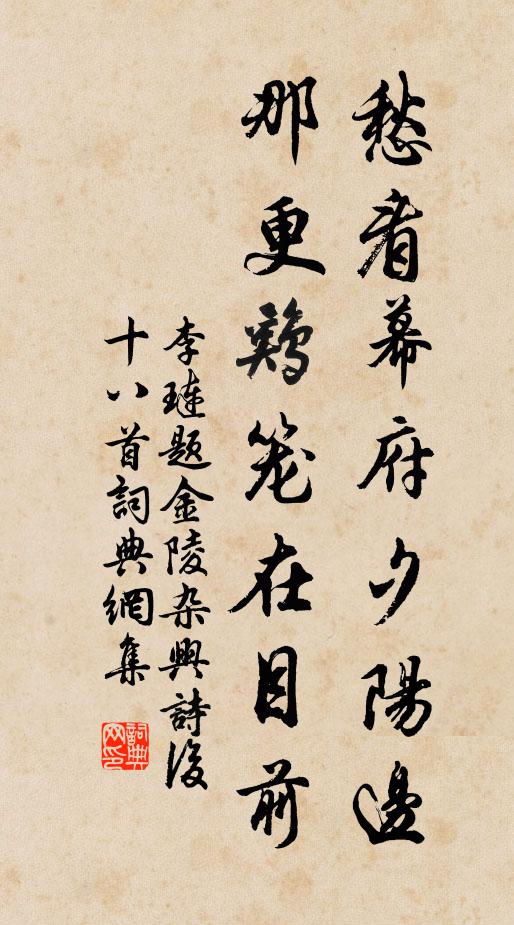 愁看幕府夕陽邊
那更鷄笼在目前
李璉题金陵杂興詩後
十八首詞典網集
詞典网印